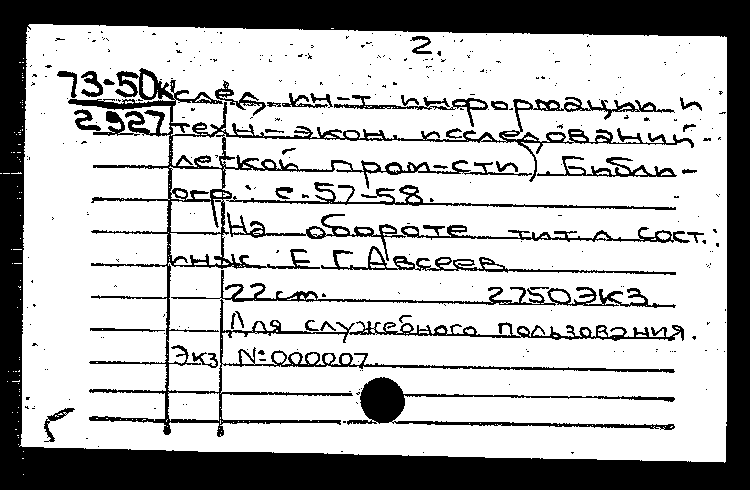 2.
73-50к след. ин-т информации и
2927 техн.-экон. исследований
легкой пром-сти). Библи-
огр.: с.57-58.
На обороте тит.л. сост.:
инж. Е.Г.Авсеев
22 cm. 2750 экз.
Для служебного пользования.
Экз. №000007